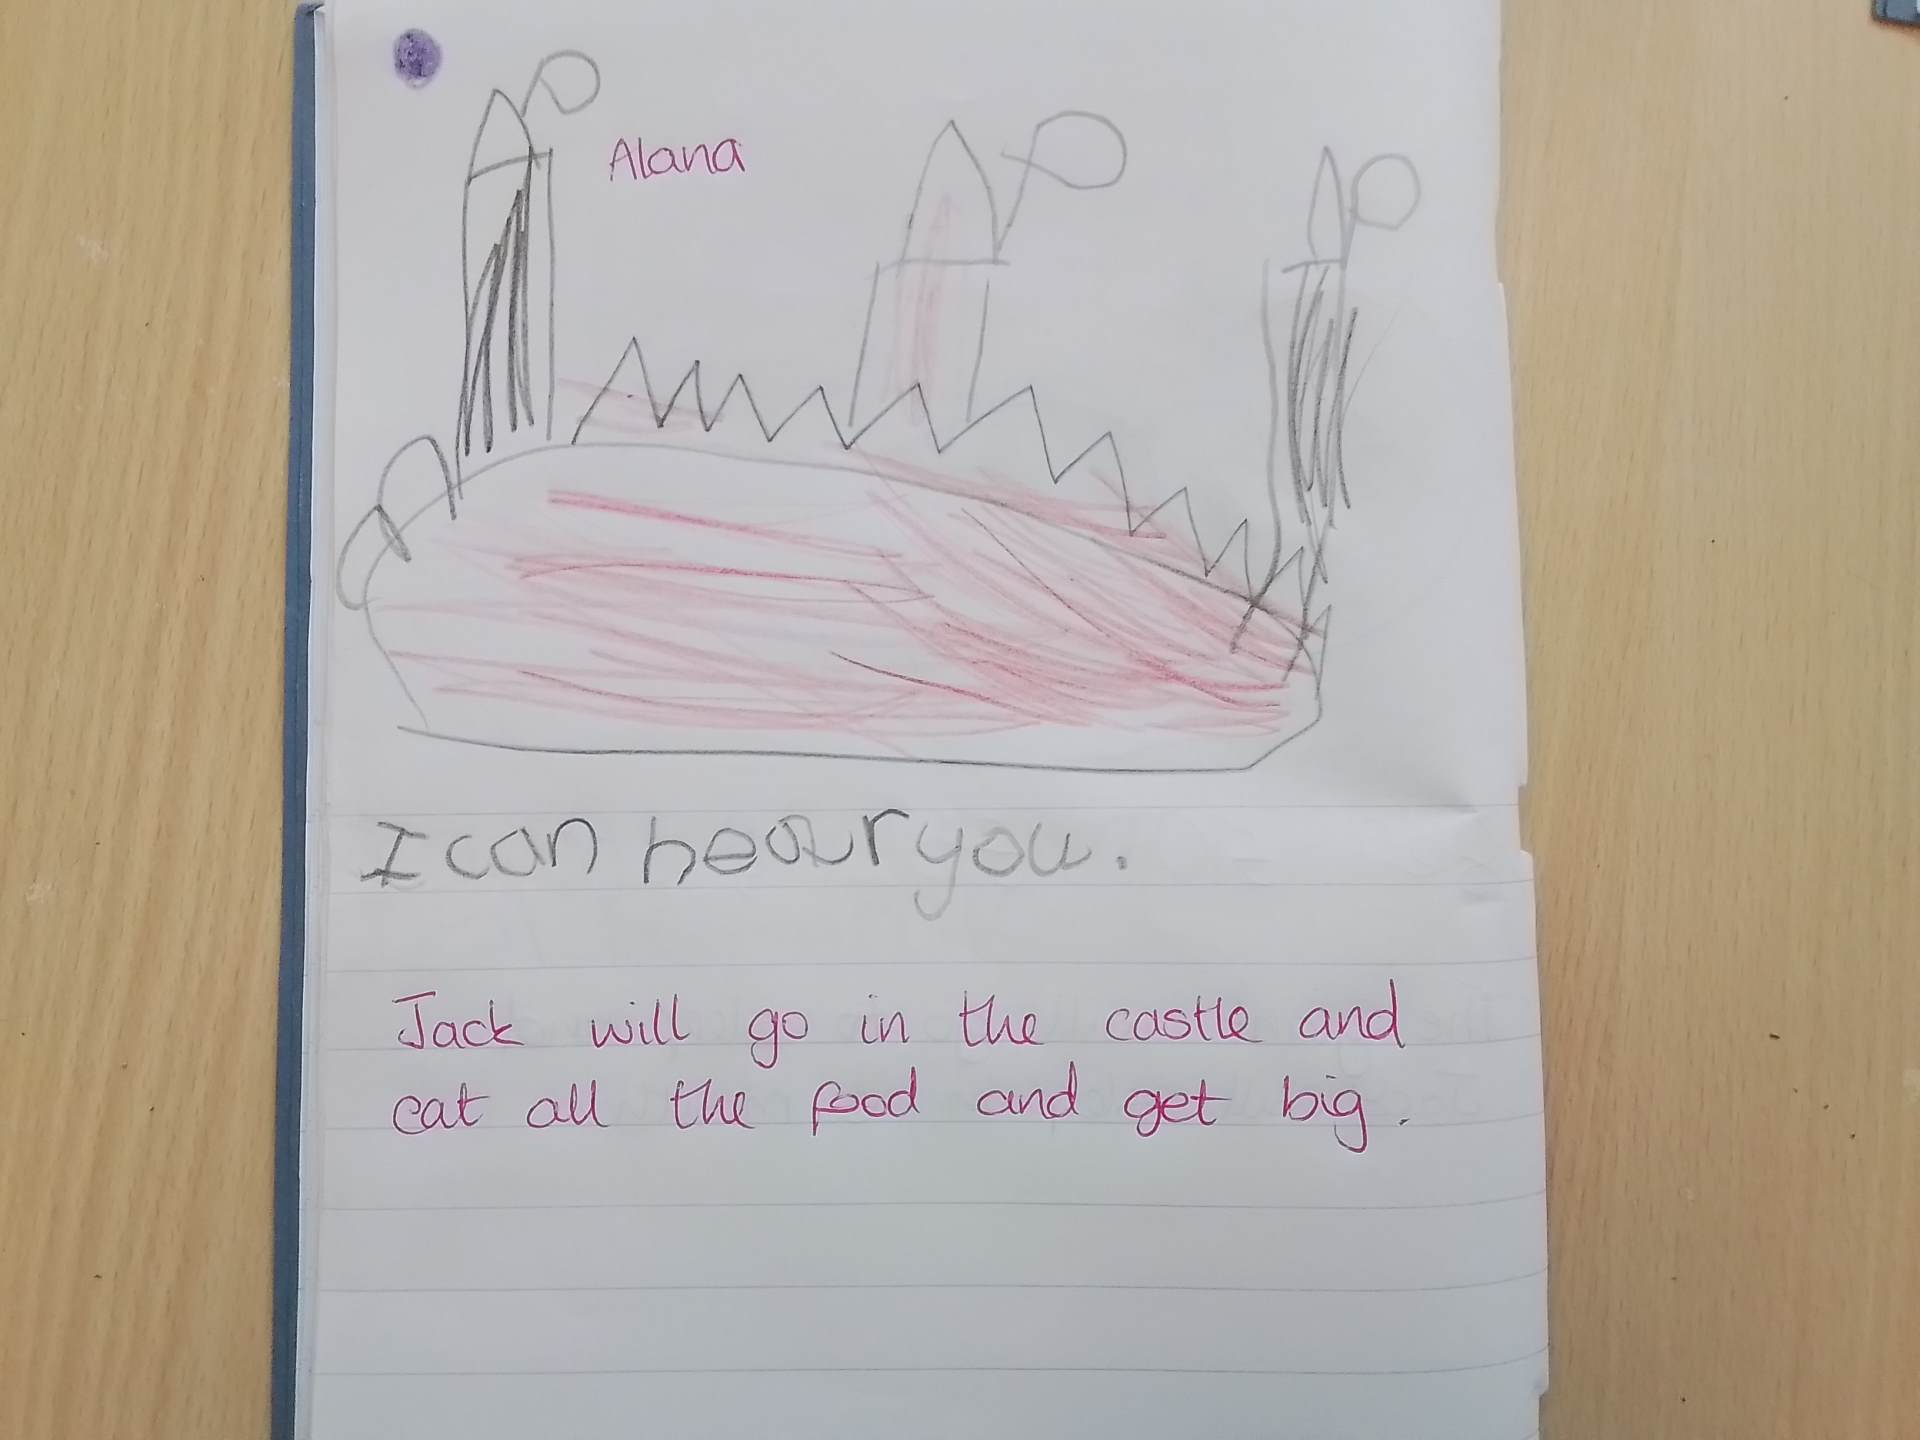 Alana
I can hear you.
Jack will go in the castle and
eat all the food and get big.